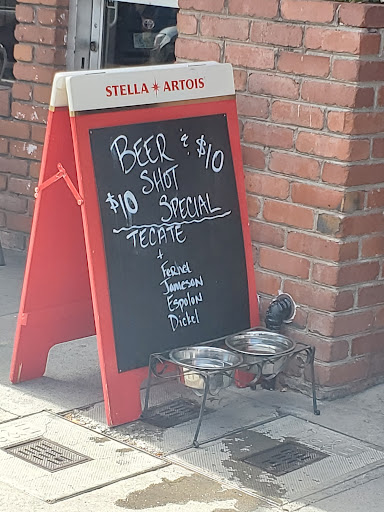 STELLA ★ ARTOIS
BEER & $10
SHOT
$10 SPECIAL
TECATE
+
Fernet
Jameson
Espolon
Dickel